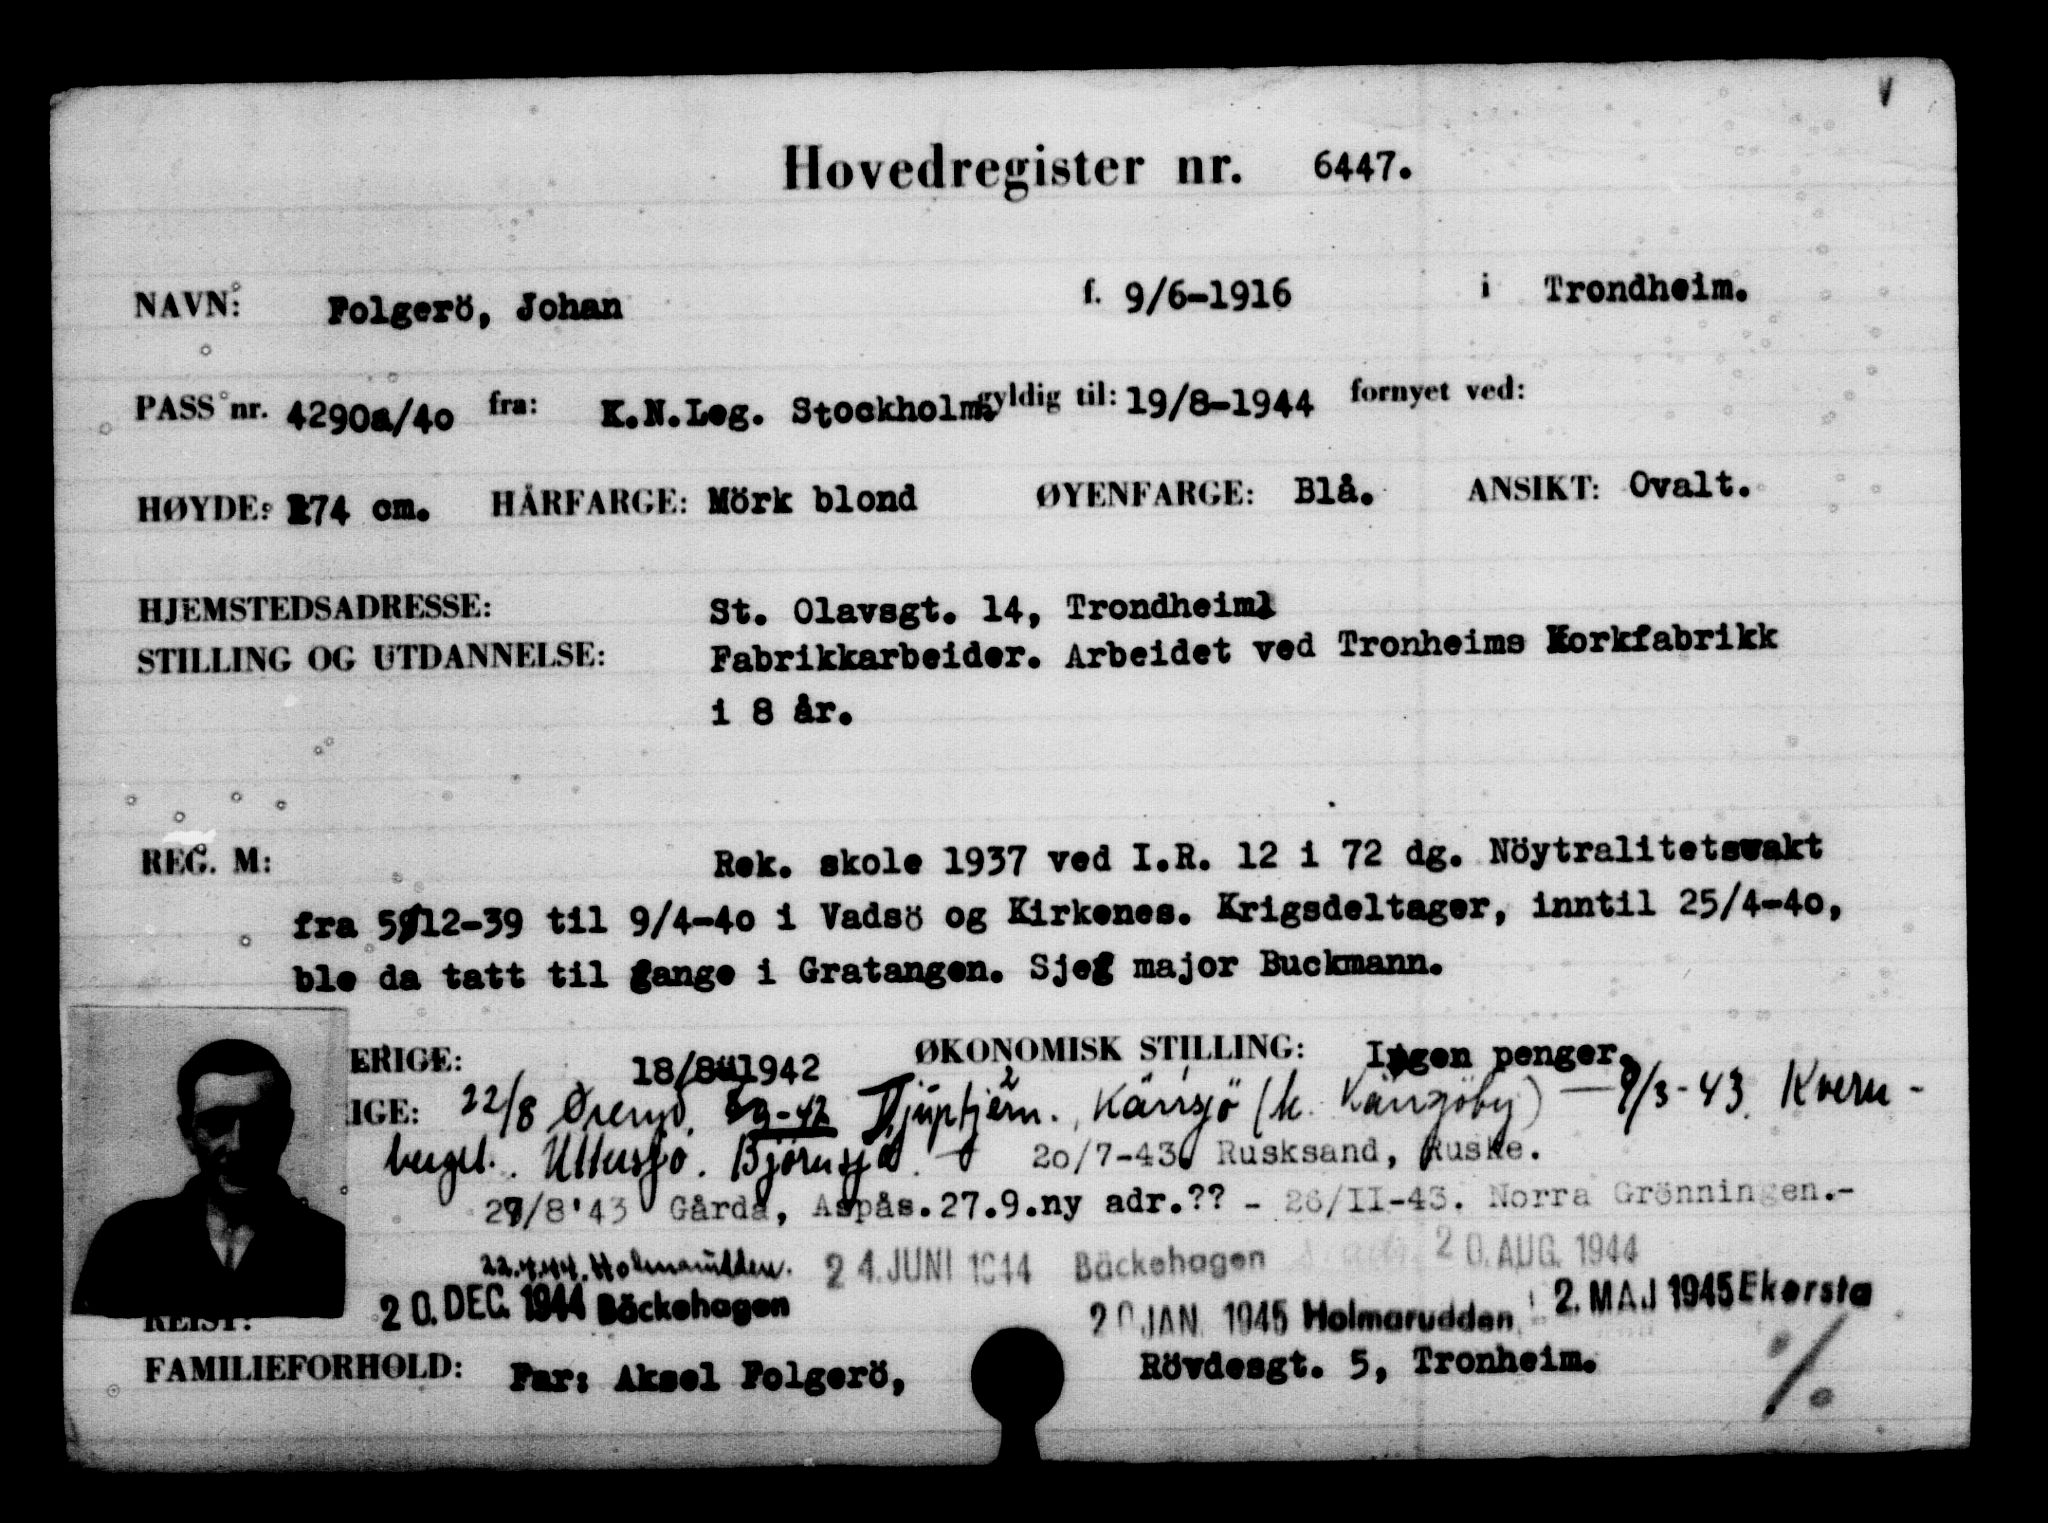 Hovedregister nr. 6447.
NAVN: Folgerö, Johan f. 9/6-1916 i Trondheim.
PASS nr. 4290a/4o fra: K.N.Leg. Stockholm. gyldig til: 19/8-1944 fornyet ved:
HØYDE: 174 cm. HÅRFARGE: Mörk blond ØYENFARGE: Blå. ANSIKT: Ovalt.
HJEMSTEDSADRESSE: St. Olavsgt. 14, Trondheim
STILLING OG UTDANNELSE: Fabrikkarbeider. Arbeidet ved Tronheims Korkfabrikk
i 8 år.
REG. M: Rek. skole 1937 ved I.R. 12 i 72 dg. Nöytralitetsvakt
fra 5/12-39 til 9/4-4o i Vadsö og Kirkenes. Krigsdeltager, inntil 25/4-4o,
ble da tatt til fange i Gratangen. Sjef major Buckmann.
ERIGE: 18/8-1942 ØKONOMISK STILLING: Ingen penger.
IGE: 22/8 Øreryd. 9-42 Djuptjern. Kärrsjö (k. Kärrsjöby) — 9/3-43. Kvern-
berget. Ullersjö. Björnsjö. 2o/7-43. Rusksand, Ruske.
27/8'43 Gårda, Aspås. 27.9.ny adr.?? - 26/II-43. Norra Grönningen.-
22.4.44. Holmarudden. 24. JUNI 1944 Bäckehagen 20. AUG. 1944
REIST: 20. DEC. 1944 Bäckehagen 20 JAN. 1945 Holmarudden 2. MAJ 1945 Ekersta
FAMILIEFORHOLD: Far: Aksel Folgerö, Rövdesgt. 5, Tronheim.